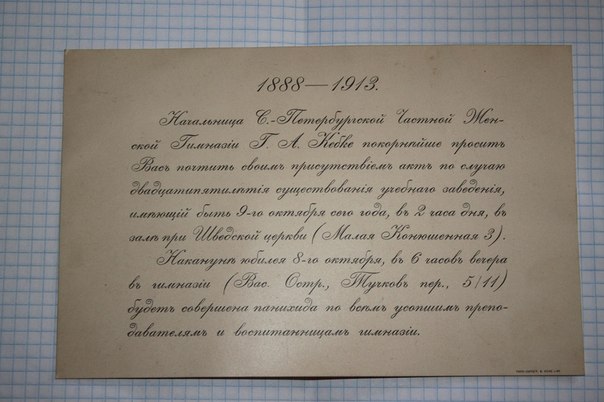 1888—1913.
Начальница С.-Петербургской Частной Жен-
ской Гимназіи Г. А. Кебке покорнѣйше проситъ
Васъ почтить своимъ присутствіемъ актъ по случаю
двадцатипятилѣтія существованія учебнаго заведенія,
имѣющій быть 9-го октября сего года, въ 2 часа дня, въ
залѣ при Шведской церкви (Малая Конюшенная 3).
Наканунѣ юбилея 8-го октября, въ 6 часовъ вечера
въ гимназіи (Вас. Остр., Тучковъ пер., 5/11)
будетъ совершена панихида по всѣмъ усопшимъ препо-
давателямъ и воспитанницамъ гимназіи.